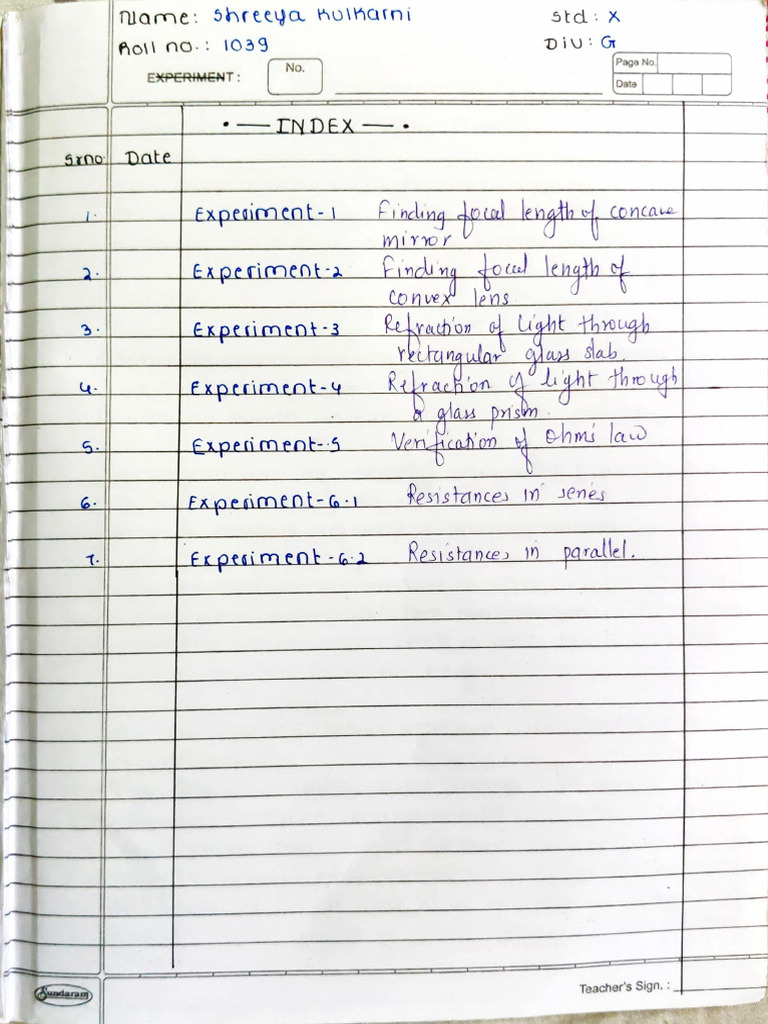 Name: Shreeya Kulkarni Std: X
Roll no.: 1039 Div: G
EXPERIMENT: No. Page No.
Date
•— INDEX —•
Sr no. Date
1. Experiment-1 Finding focal length of concave
mirror
2. Experiment-2 Finding focal length of
convex lens.
3. Experiment-3 Refraction of light through
rectangular glass slab.
4. Experiment-4 Refraction of light through
a glass prism.
5. Experiment-5 Verification of Ohm's law
6. Experiment-6.1 Resistances in series
7. Experiment-6.2 Resistances in parallel.
Sundaram Teacher's Sign. :